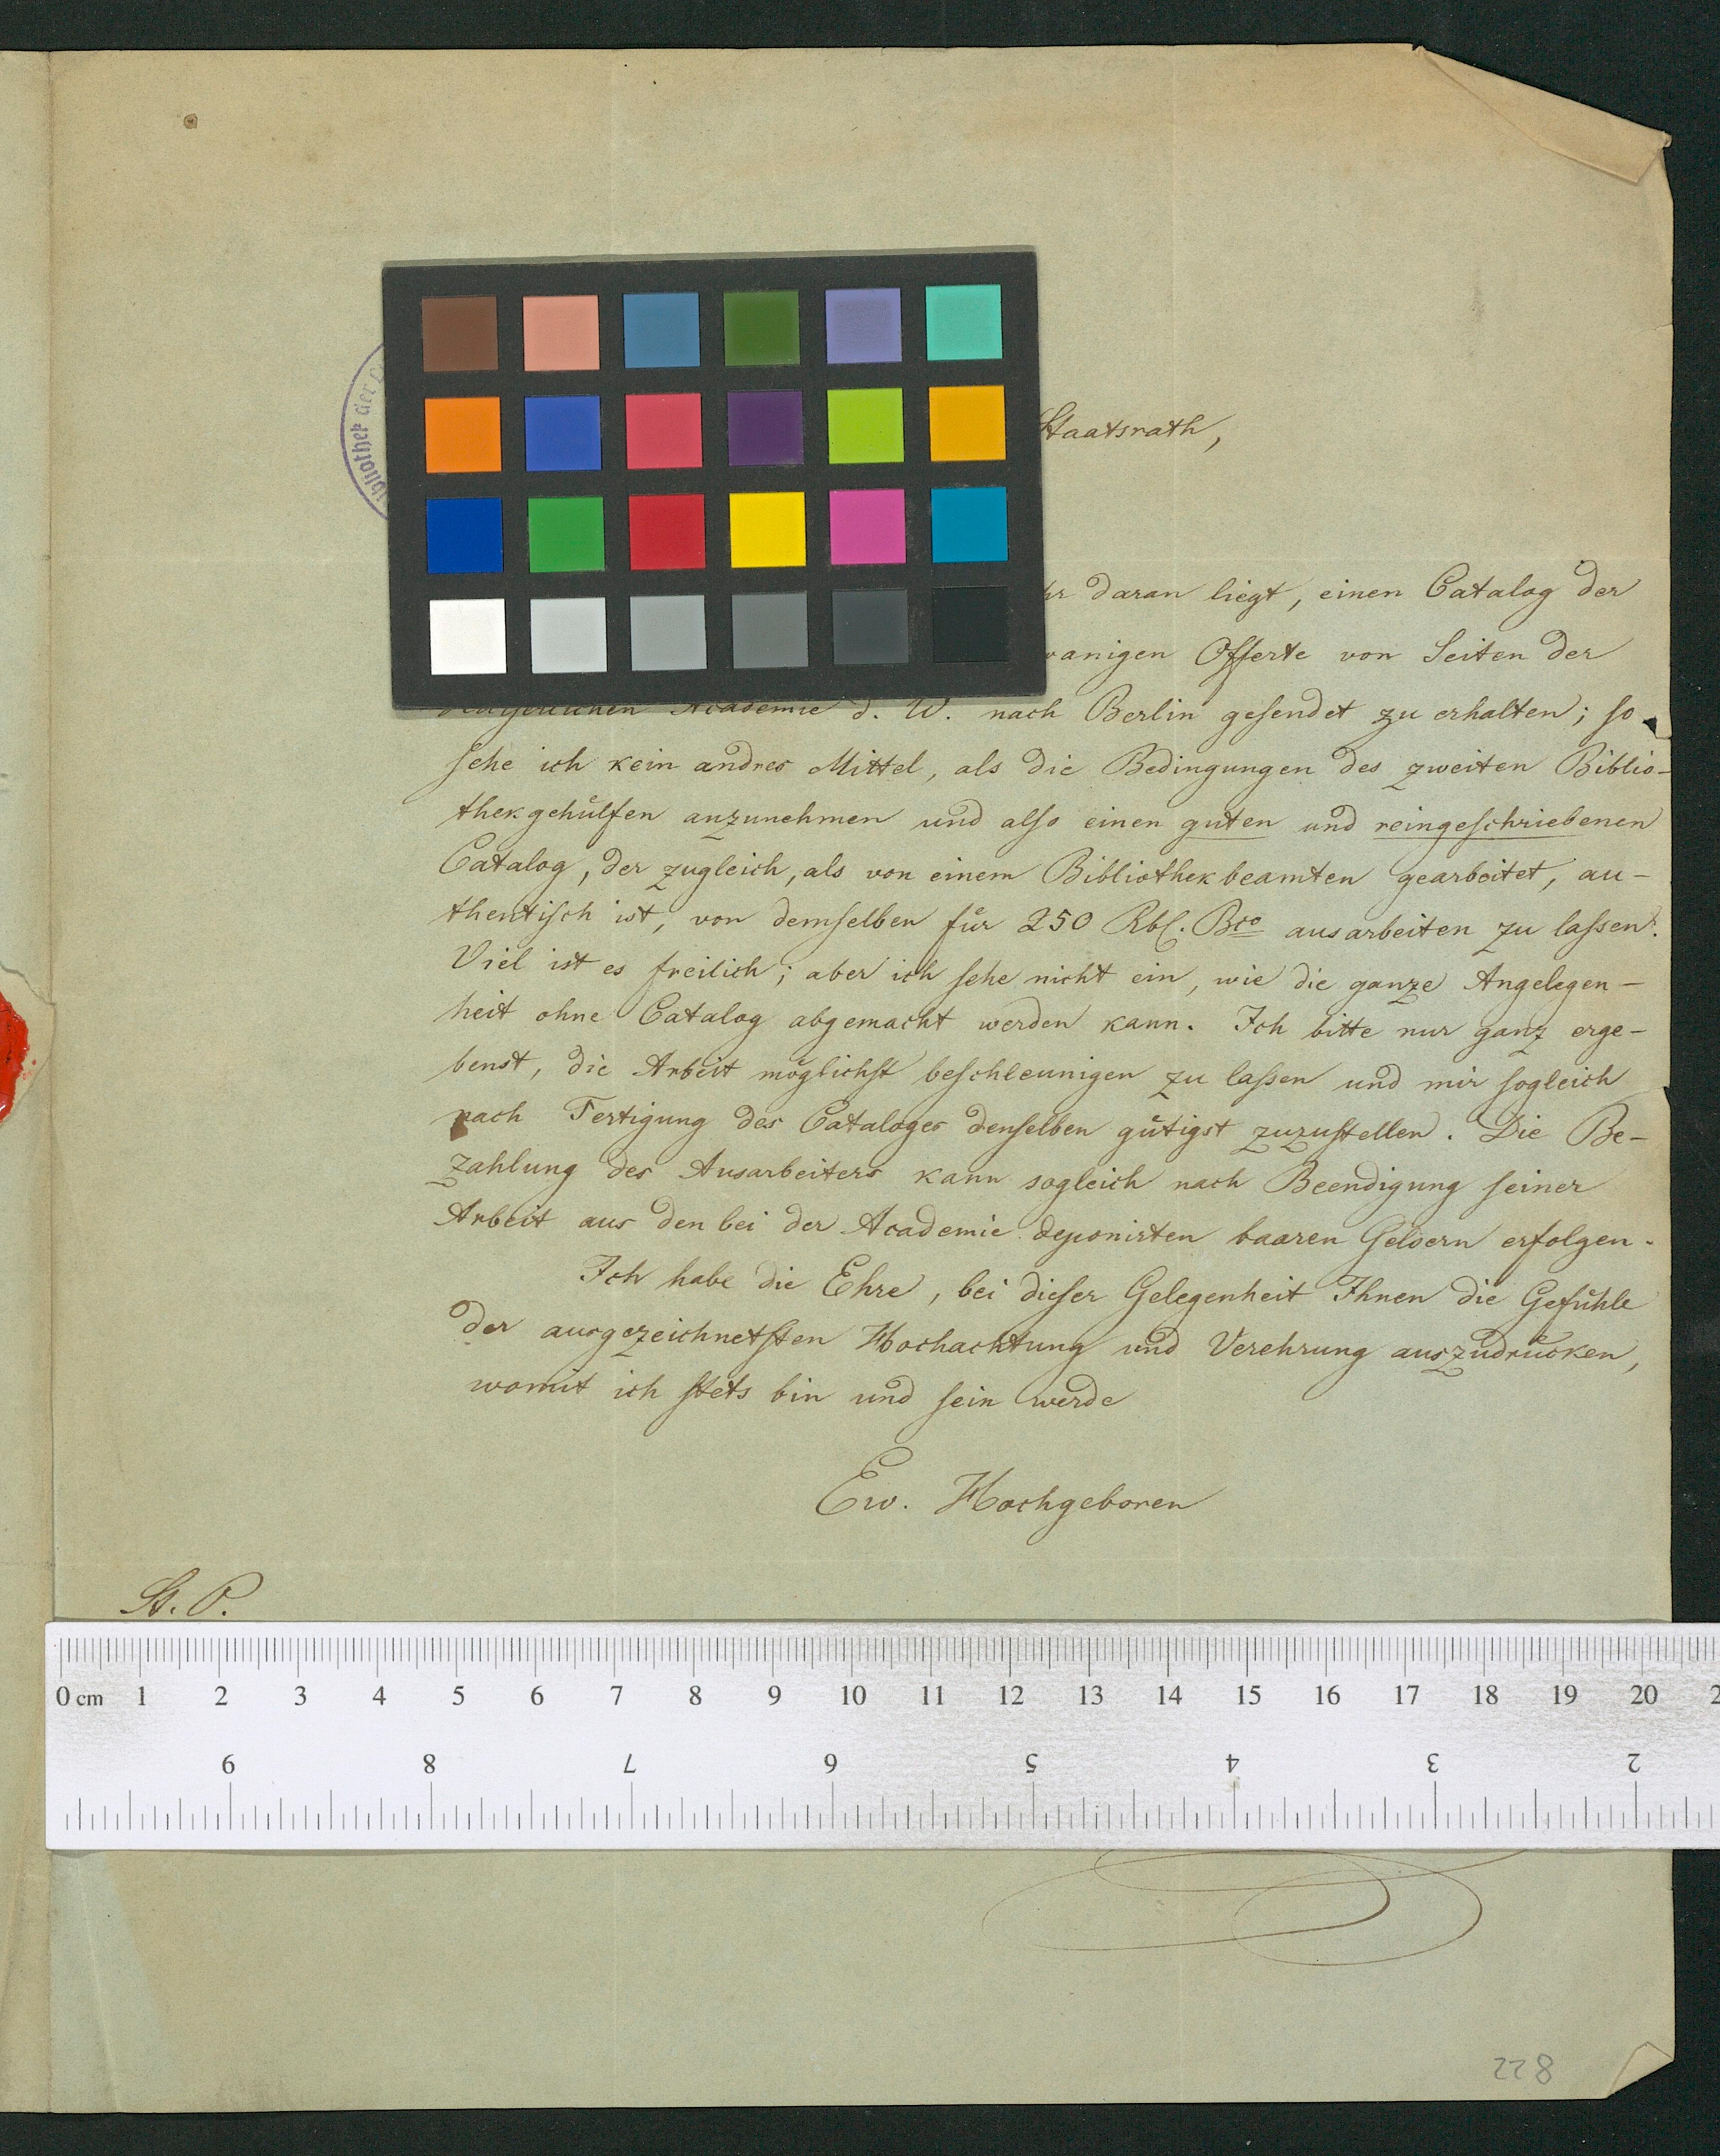 Staatsrath,
daran liegt, einen Catalog der
Offerte von Seiten der
Academie d. W. nach Berlin gesendet zu erhalten; so
sehe ich kein andres Mittel, als die Bedingungen des zweiten Biblio-
thekgehülfen anzunehmen und also einen guten und reingeschriebenen
Catalog, der zugleich, als von einem Bibliothekbeamten gearbeitet, au-
thentisch ist, von demselben für 250 Rbl. Bco ausarbeiten zu lassen.
Viel ist es freilich; aber ich sehe nicht ein, wie die ganze Angelegen-
heit ohne Catalog abgemacht werden kann. Ich bitte nur ganz erge-
benst, die Arbeit möglichst beschleunigen zu lassen und mir sogleich
nach Fertigung des Cataloges denselben gütigst zuzustellen. Die Be-
zahlung des Ausarbeiters kann sogleich nach Beendigung seiner
Arbeit aus den bei der Academie deponirten baaren Geldern erfolgen.
Ich habe die Ehre, bei dieser Gelegenheit Ihnen die Gefühle
der ausgezeichnetsten Hochachtung und Verehrung auszudrücken,
womit ich stets bin und sein werde
Ew. Hochgeboren
St. P.
0 cm 1 2 3 4 5 6 7 8 9 10 11 12 13 14 15 16 17 18 19 20
9 8 7 6 5 4 3 2
228